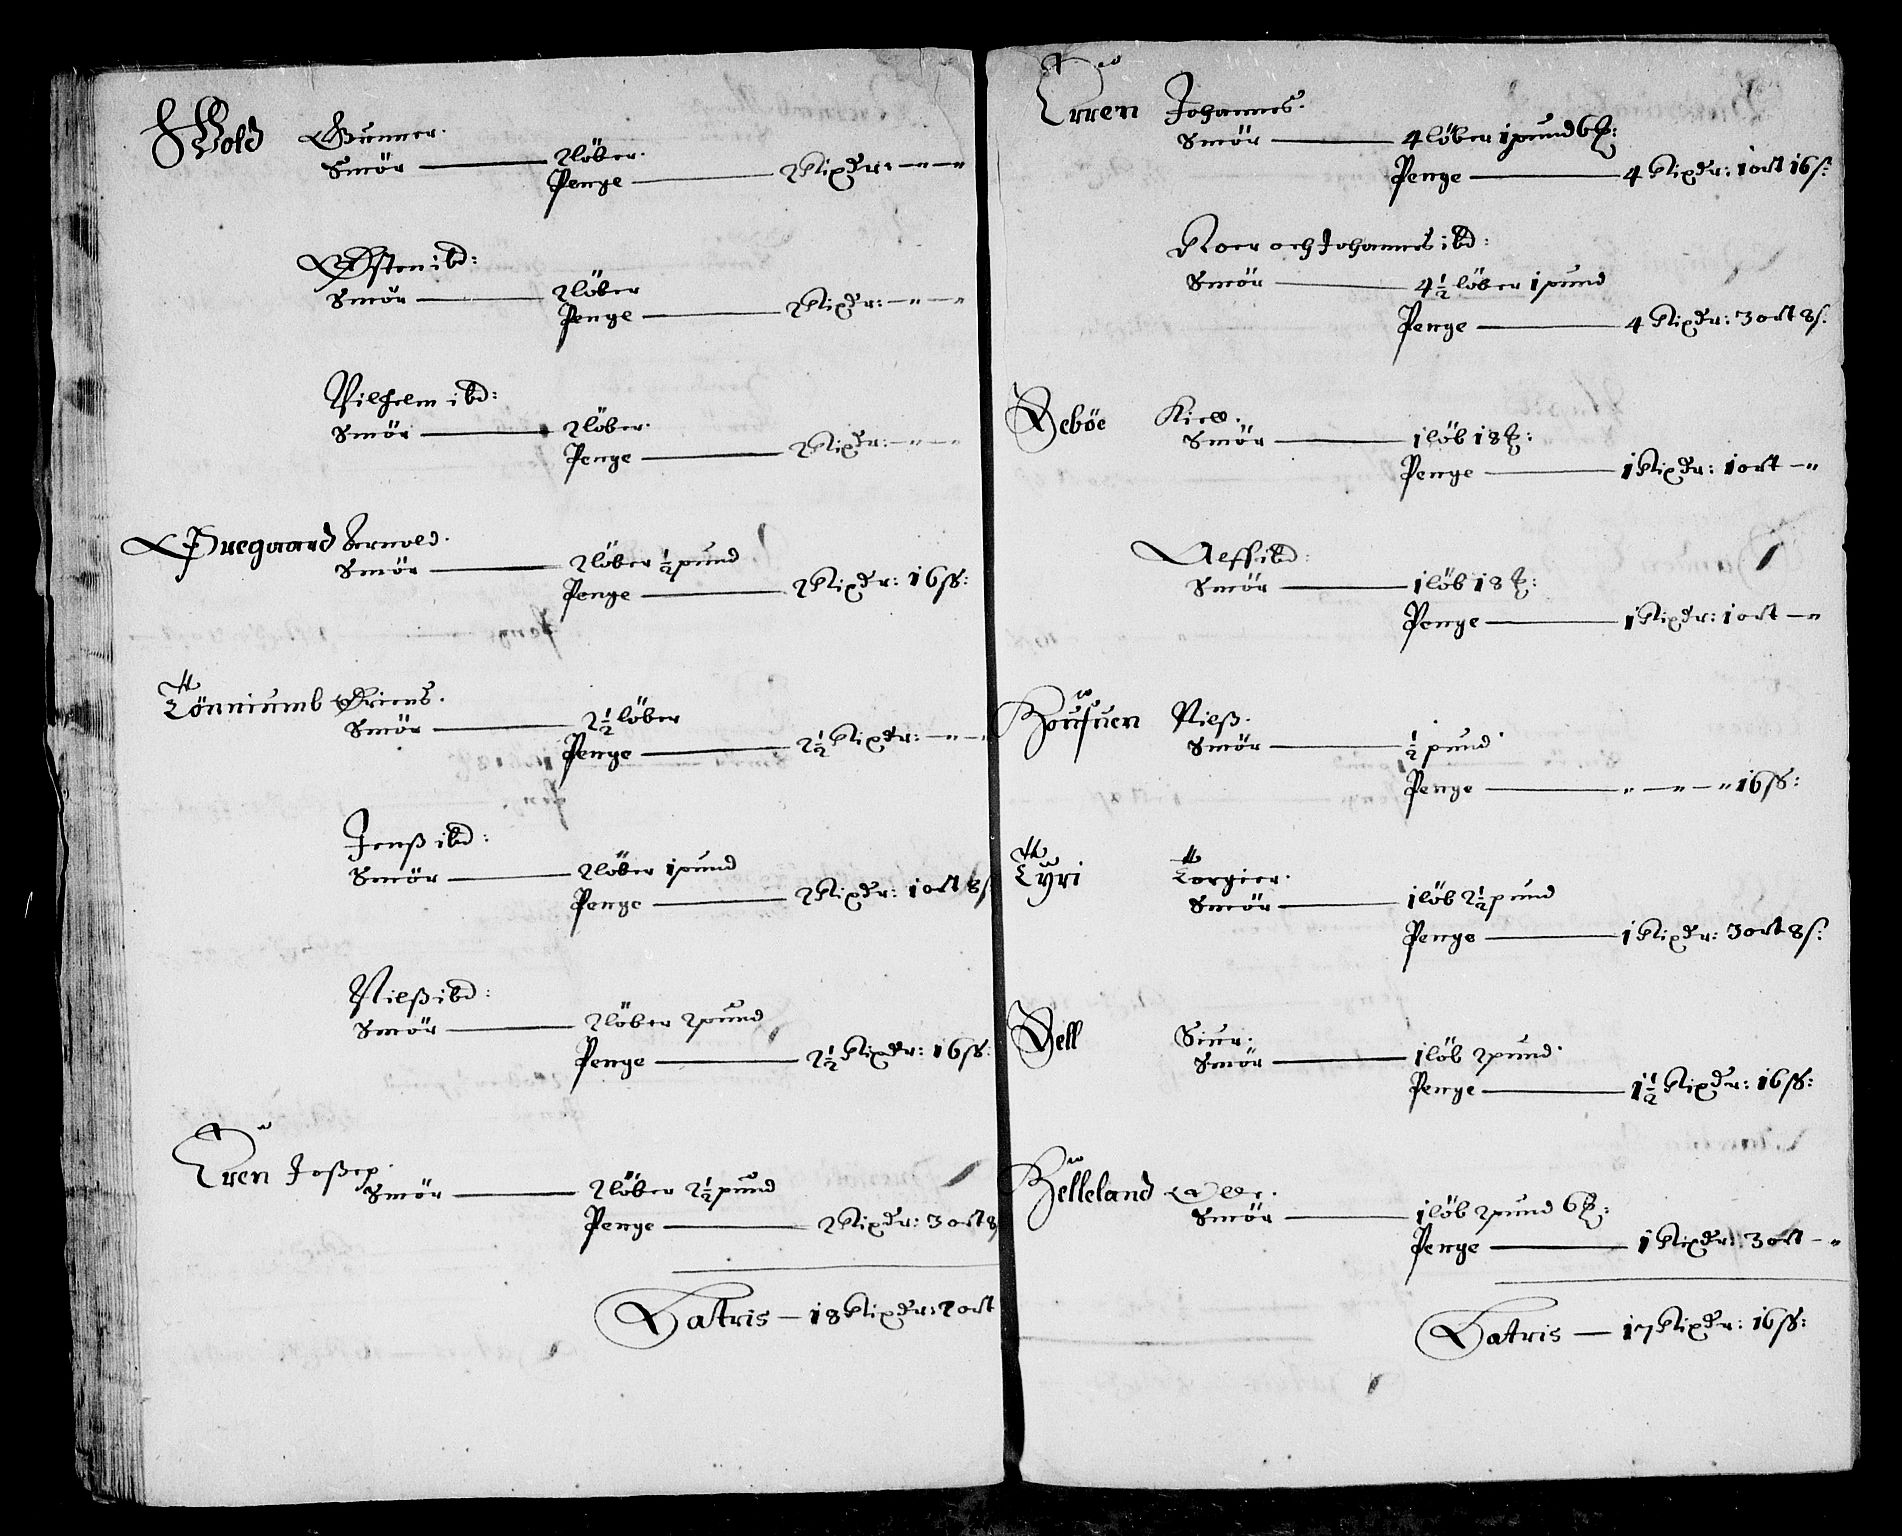 Wold Gunner.
Smör — 2 löber.
Penge — 2 Rixdr: — " — "
Østen ibd:
Smör — 2 löber
Penge — 2 Rixdr: — " — "
Vilhelm ibd:
Smör — 2 löber.
Penge — 2 Rixdr: — " — "
Øregaard Arnold.
Smör — 2 löber ½ pund
Penge — 2 Rixdr: 16 sß:
Tönniumb
Smör — 2½ löber
Penge — 2½ Rixdr: — " — "
Jenß ibd:
Smör — 2 löber 1 pund
Penge — 2 Rixdr: 1 ort 8 s
Nielß ibd:
Smör — 2 löber 2 pund
Penge — 2½ Rixdr: 16 sß:
Eren Joßep.
Smör — 2 löber 2½ pund
Penge — 2 Rixdr: 3 ort 8
Latris — 18 Rixdr: 2 ort
Erren Johannes.
Smör — 4 löber 1 pund 6 ℔:
Penge — 4 Rixdr: 1 ort 16 s:
Roer och Johannes ibd:
Smör — 4½ löber 1 pund
Penge — 4 Rixdr: 3 ort 8 s:
Kiell.
Smör — 1 löb 18 ℔:
Penge — 1 Rixdr: 1 ort — "
Alff ibd:
Smör — 1 löb 18 ℔:
Penge — 1 Rixdr: 1 ort — "
Nielß.
Smör — ½ pund
Penge — " — " — " 16 sß:
Tyri Torgier.
Smör — 1 löb 2½ pund
Penge — 1 Rixdr: 3 ort 8 s:
Siur.
Smör — 1 löb 2 pund.
Penge — 1½ Rixdr: 16 sß:
Helleland Olle.
Smör — 1 löb 2 pund 6 ℔:
Penge — 1 Rixdr: 3 ort — "
Latris — 17 Rixdr: 16 sß: